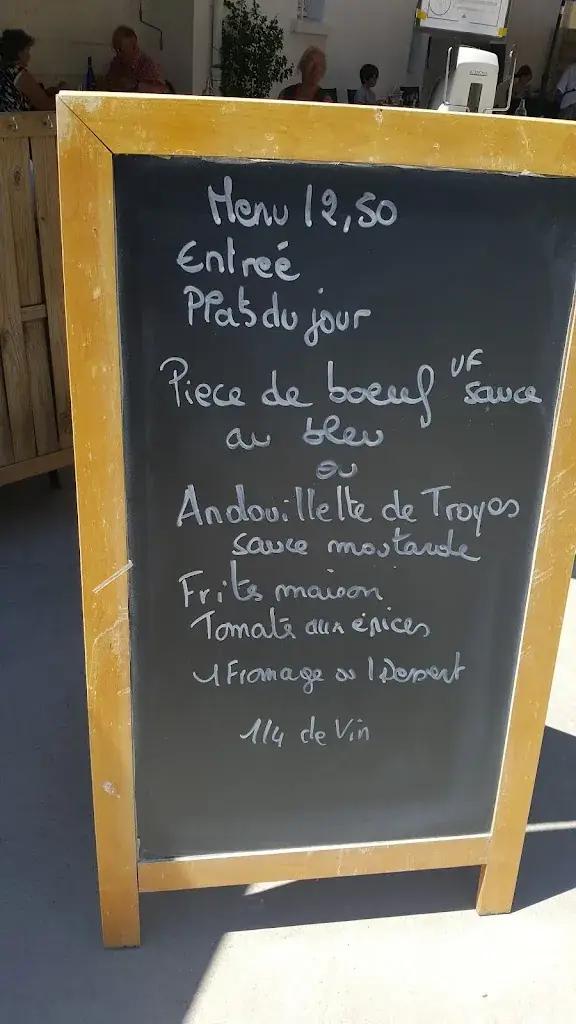 Menu 12,50
Entreé
Plats du jour
Piece de boeuf VF sauce
au bleu
ou
Andouillette de Troyes
sauce moutarde
Frites maison
Tomate aux épices
1 Fromage ou 1 Dessert
1/4 de Vin